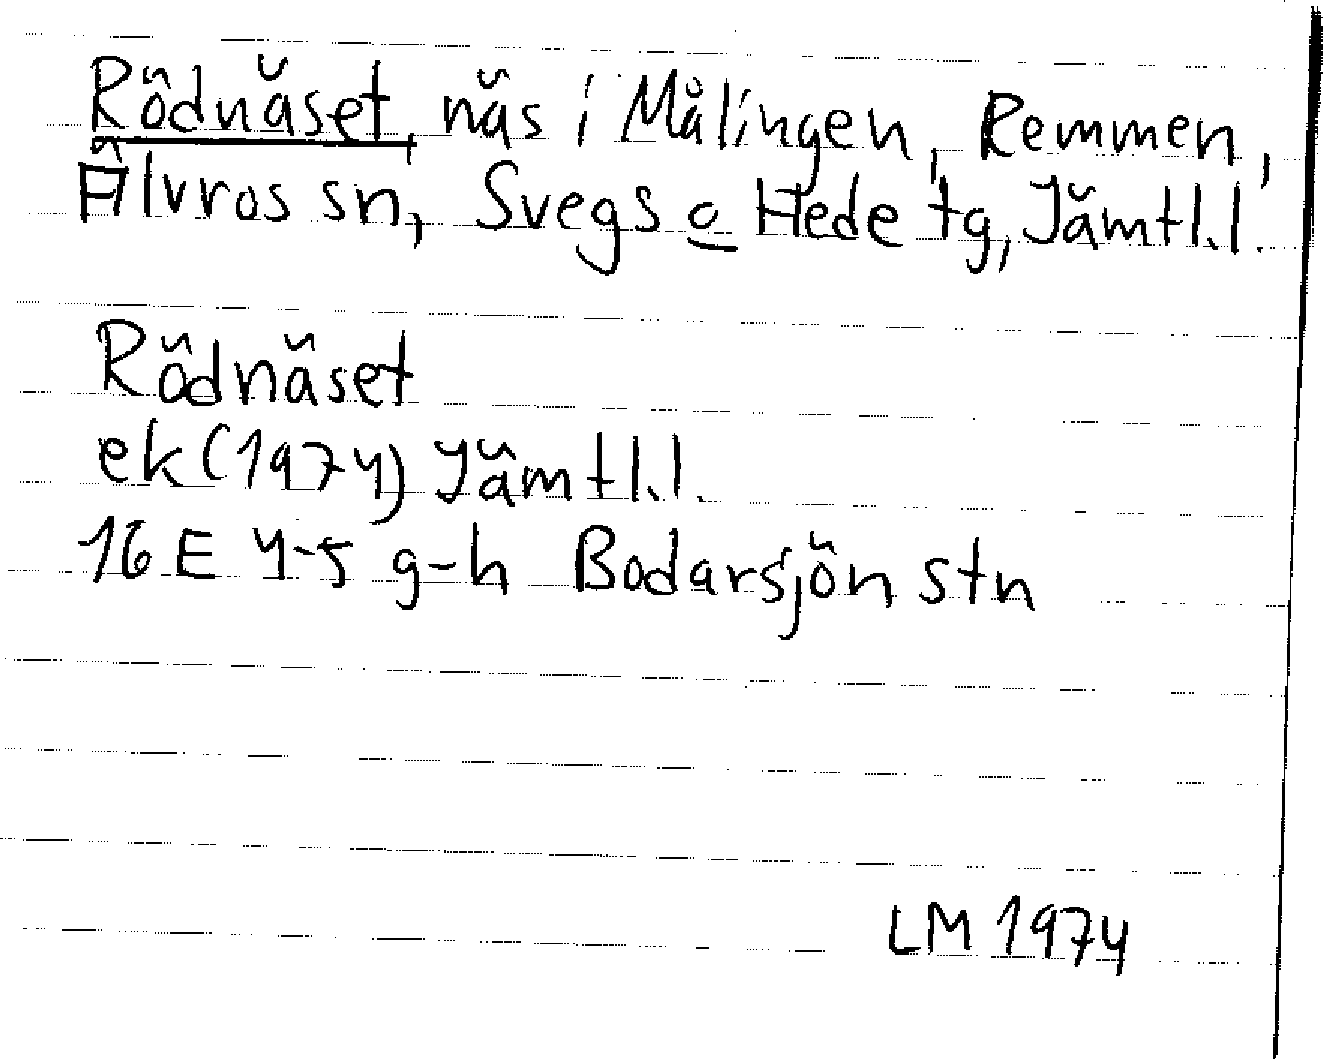 Rödnäset, näs i Målingen, Remmen,
Älvros sn, Svegs o Hede tg, Jämtl.l.
Rödnäset
ek (1974) Jämtl.l.
16 E 4-5 g-h Bodarsjön stn
LM 1974